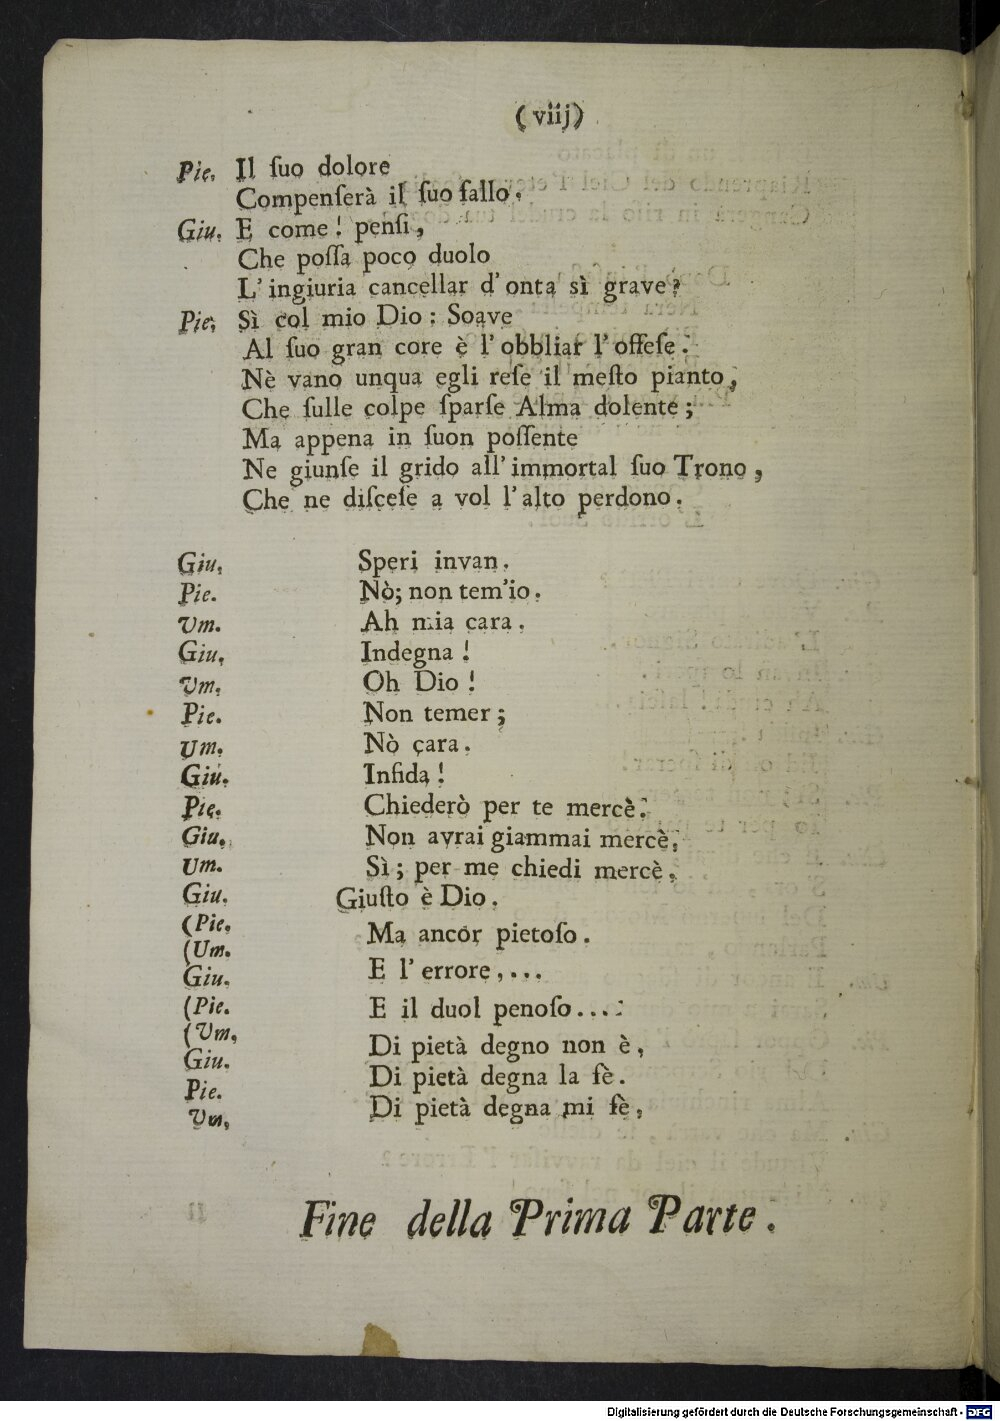 (viij)
Pie. Il ſuo dolore
Compenſerà il ſuo fallo.
Giu. E come! penſi,
Che poſſa poco duolo
L'ingiuria cancellar d'onta sì grave?
Pie. Sì col mio Dio: Soave
Al ſuo gran core è l'obbliar l'offeſe.
Nè vano unqua egli reſe il meſto pianto,
Che ſulle colpe ſparſe Alma dolente;
Ma appena in ſuon poſſente
Ne giunſe il grido all'immortal ſuo Trono,
Che ne diſceſe a vol l'alto perdono.
Giu. Speri invan.
Pie. Nò; non tem'io.
Um. Ah mia cara.
Giu. Indegna!
Um. Oh Dio!
Pie. Non temer;
Um. Nò cara.
Giu. Infida!
Pie. Chiederò per te mercè.
Giu. Non avrai giammai mercè,
Um. Sì; per me chiedi mercè.
Giu. Giuſto è Dio.
(Pie.
(Um. Ma ancor pietoſo.
Giu. E l'errore,...
(Pie.
(Um. E il duol penoſo....
Giu. Di pietà degno non è,
Pie. Di pietà degna la fè.
Um. Di pietà degna mi fè,
Fine della Prima Parte.
Digitalisierung gefördert durch die Deutsche Forschungsgemeinschaft - DFG